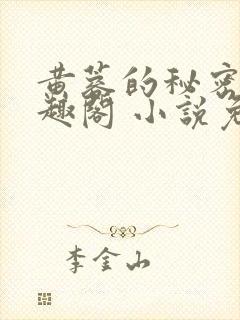 黄墓的秘密
趣阁 小說免
李金山